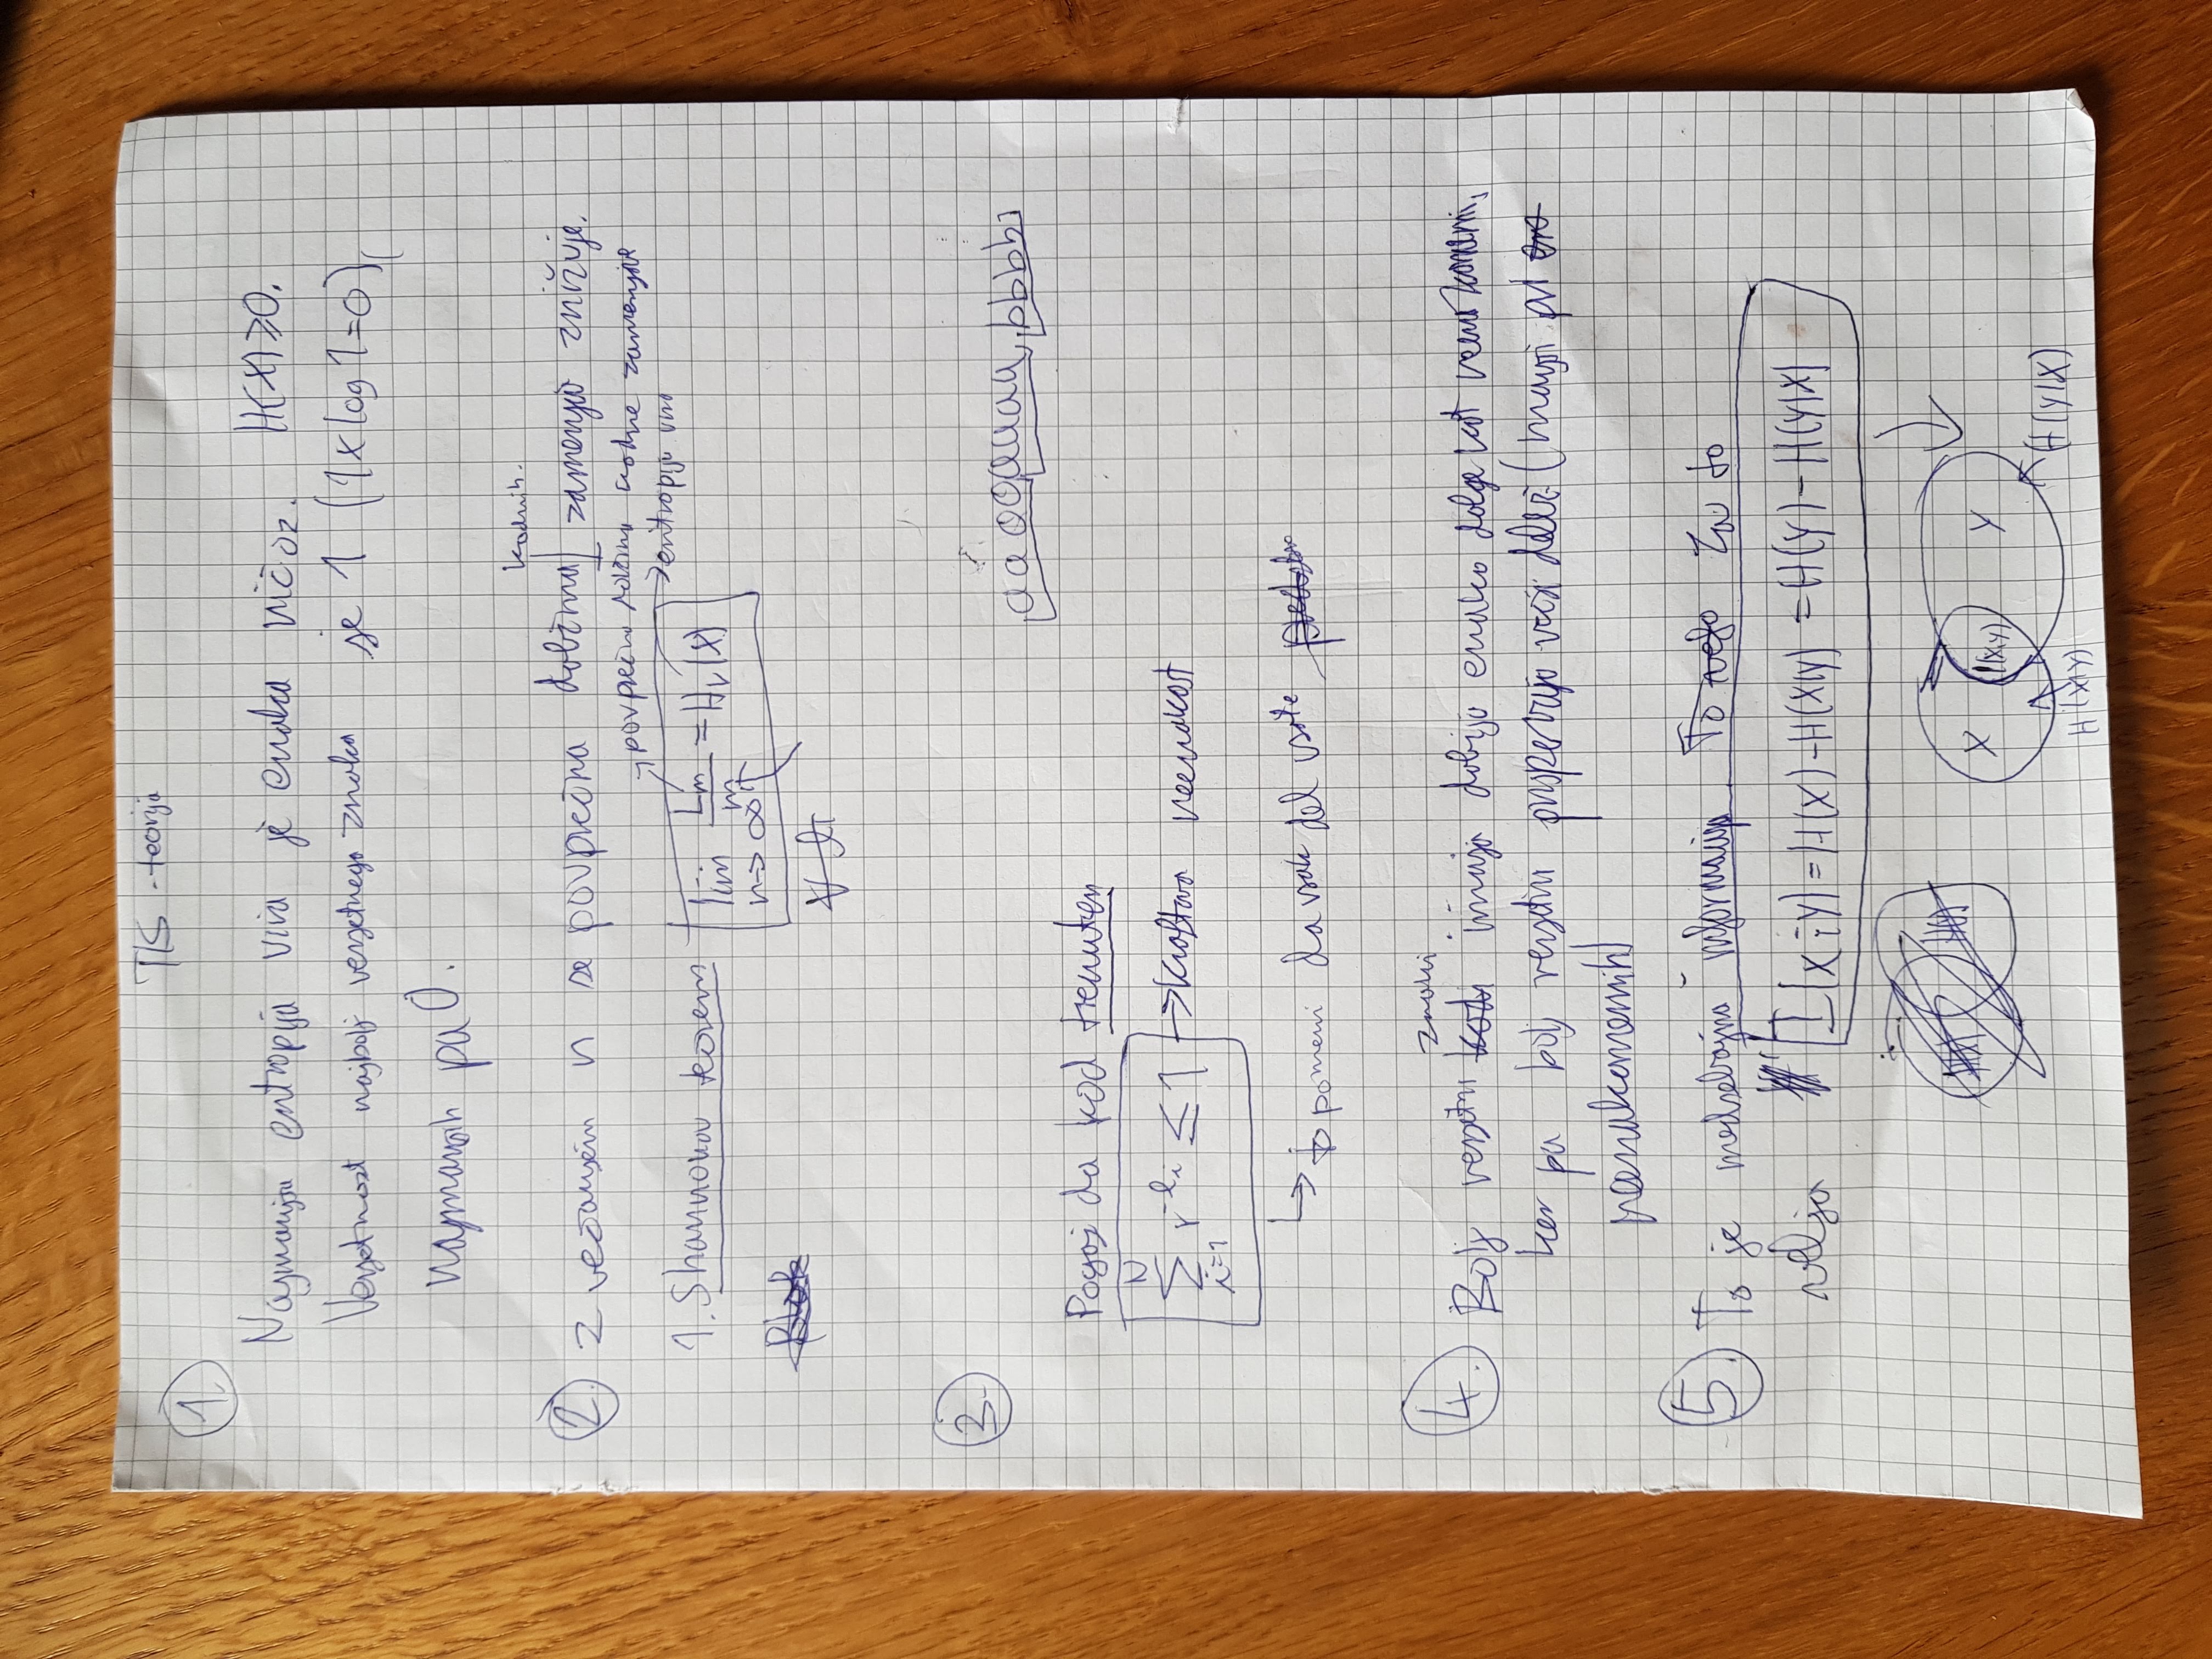 TIS - teorija
1.
Najmanjša entropija vira je enaka nič oz. H(X)≥0.
Verjetnost najbolj verjetnega znaka je 1 (1x log 1=0),
najmanjših pa 0.
kodnih.
2. Z večanjem n se povprečna dolžina zamenjav znižuje.
→povprečna dolžina kodne zamenjave
→entropija vira
1. Shannonov teorem lim n→∞ Ln/n = H_r(X)
3.
aaaaaaaa,bbbb
Pogoj da kod trenuten
∑_{i=1}^{N} r^{-l_i} ≤ 1 → kraftova neenakost
↳ to pomeni da vsak del vsote
znaki
4. Bolj verjetni imajo dobijo enako dolge kot
ker pa bolj verjetni prispevajo večji delež (manjši pri
neenakomernih)
5. To je medsebojna informacija. Za to
velja I(X;Y)=H(X)-H(X|Y) = H(Y)-H(Y|X)
X I(X;Y) Y
H(X|Y) H(Y|X)